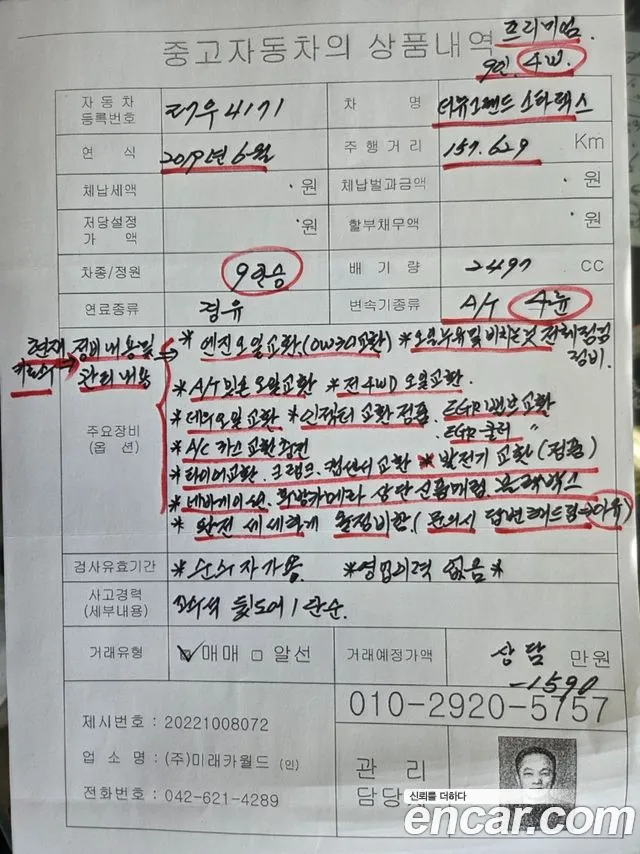 중고자동차의 상품내역 프리미엄.
9인. 4W.
자동차 등록번호 4171 차 명 더뉴그랜드 스타렉스
연 식 2019년 6월 주행거리 157.629 Km
체납세액 . 원 체납벌과금액 . 원
저당설정 가 액 . 원 할부채무액 . 원
차종/정원 9인승 배 기 량 2497 cc
연료종류 경유 변속기종류 A/T 4륜
현재 정비내용및 * 엔진오일교환.(0W30교환) * 오일누유및 비치는것 전체점검
관리내용 정비.
* A/T 밋숀오일교환 * 전4WD 오일교환.
* 데후오일교환 * 인젝터 교환 정품. EGR밸브교환
주요장비 (옵 션) EGR쿨러 〃
* A/C 가스교환충전
* 타이어교환. 크랭크. 캠센서교환 * 발전기교환(정품)
* 네비게이션. 후방카메라 상단신품매립. 블랙박스
* 완전 세세하게 올정비함.(문의시 답변해드림→이유)
검사유효기간 * 순수자가용. * 영업이력 없음 *
사고경력 (세부내용) 조수석 뒷도어 1 단순.
거래유형 ☑ 매매 □ 알선 거래예정가액 상담 만원
-1590
010-2920-5757
제시번호 : 20221008072
업 소 명 : (주)미래카월드 (인) 관 리
전화번호 : 042-621-4289 담당
신뢰를 더하다
encar.com